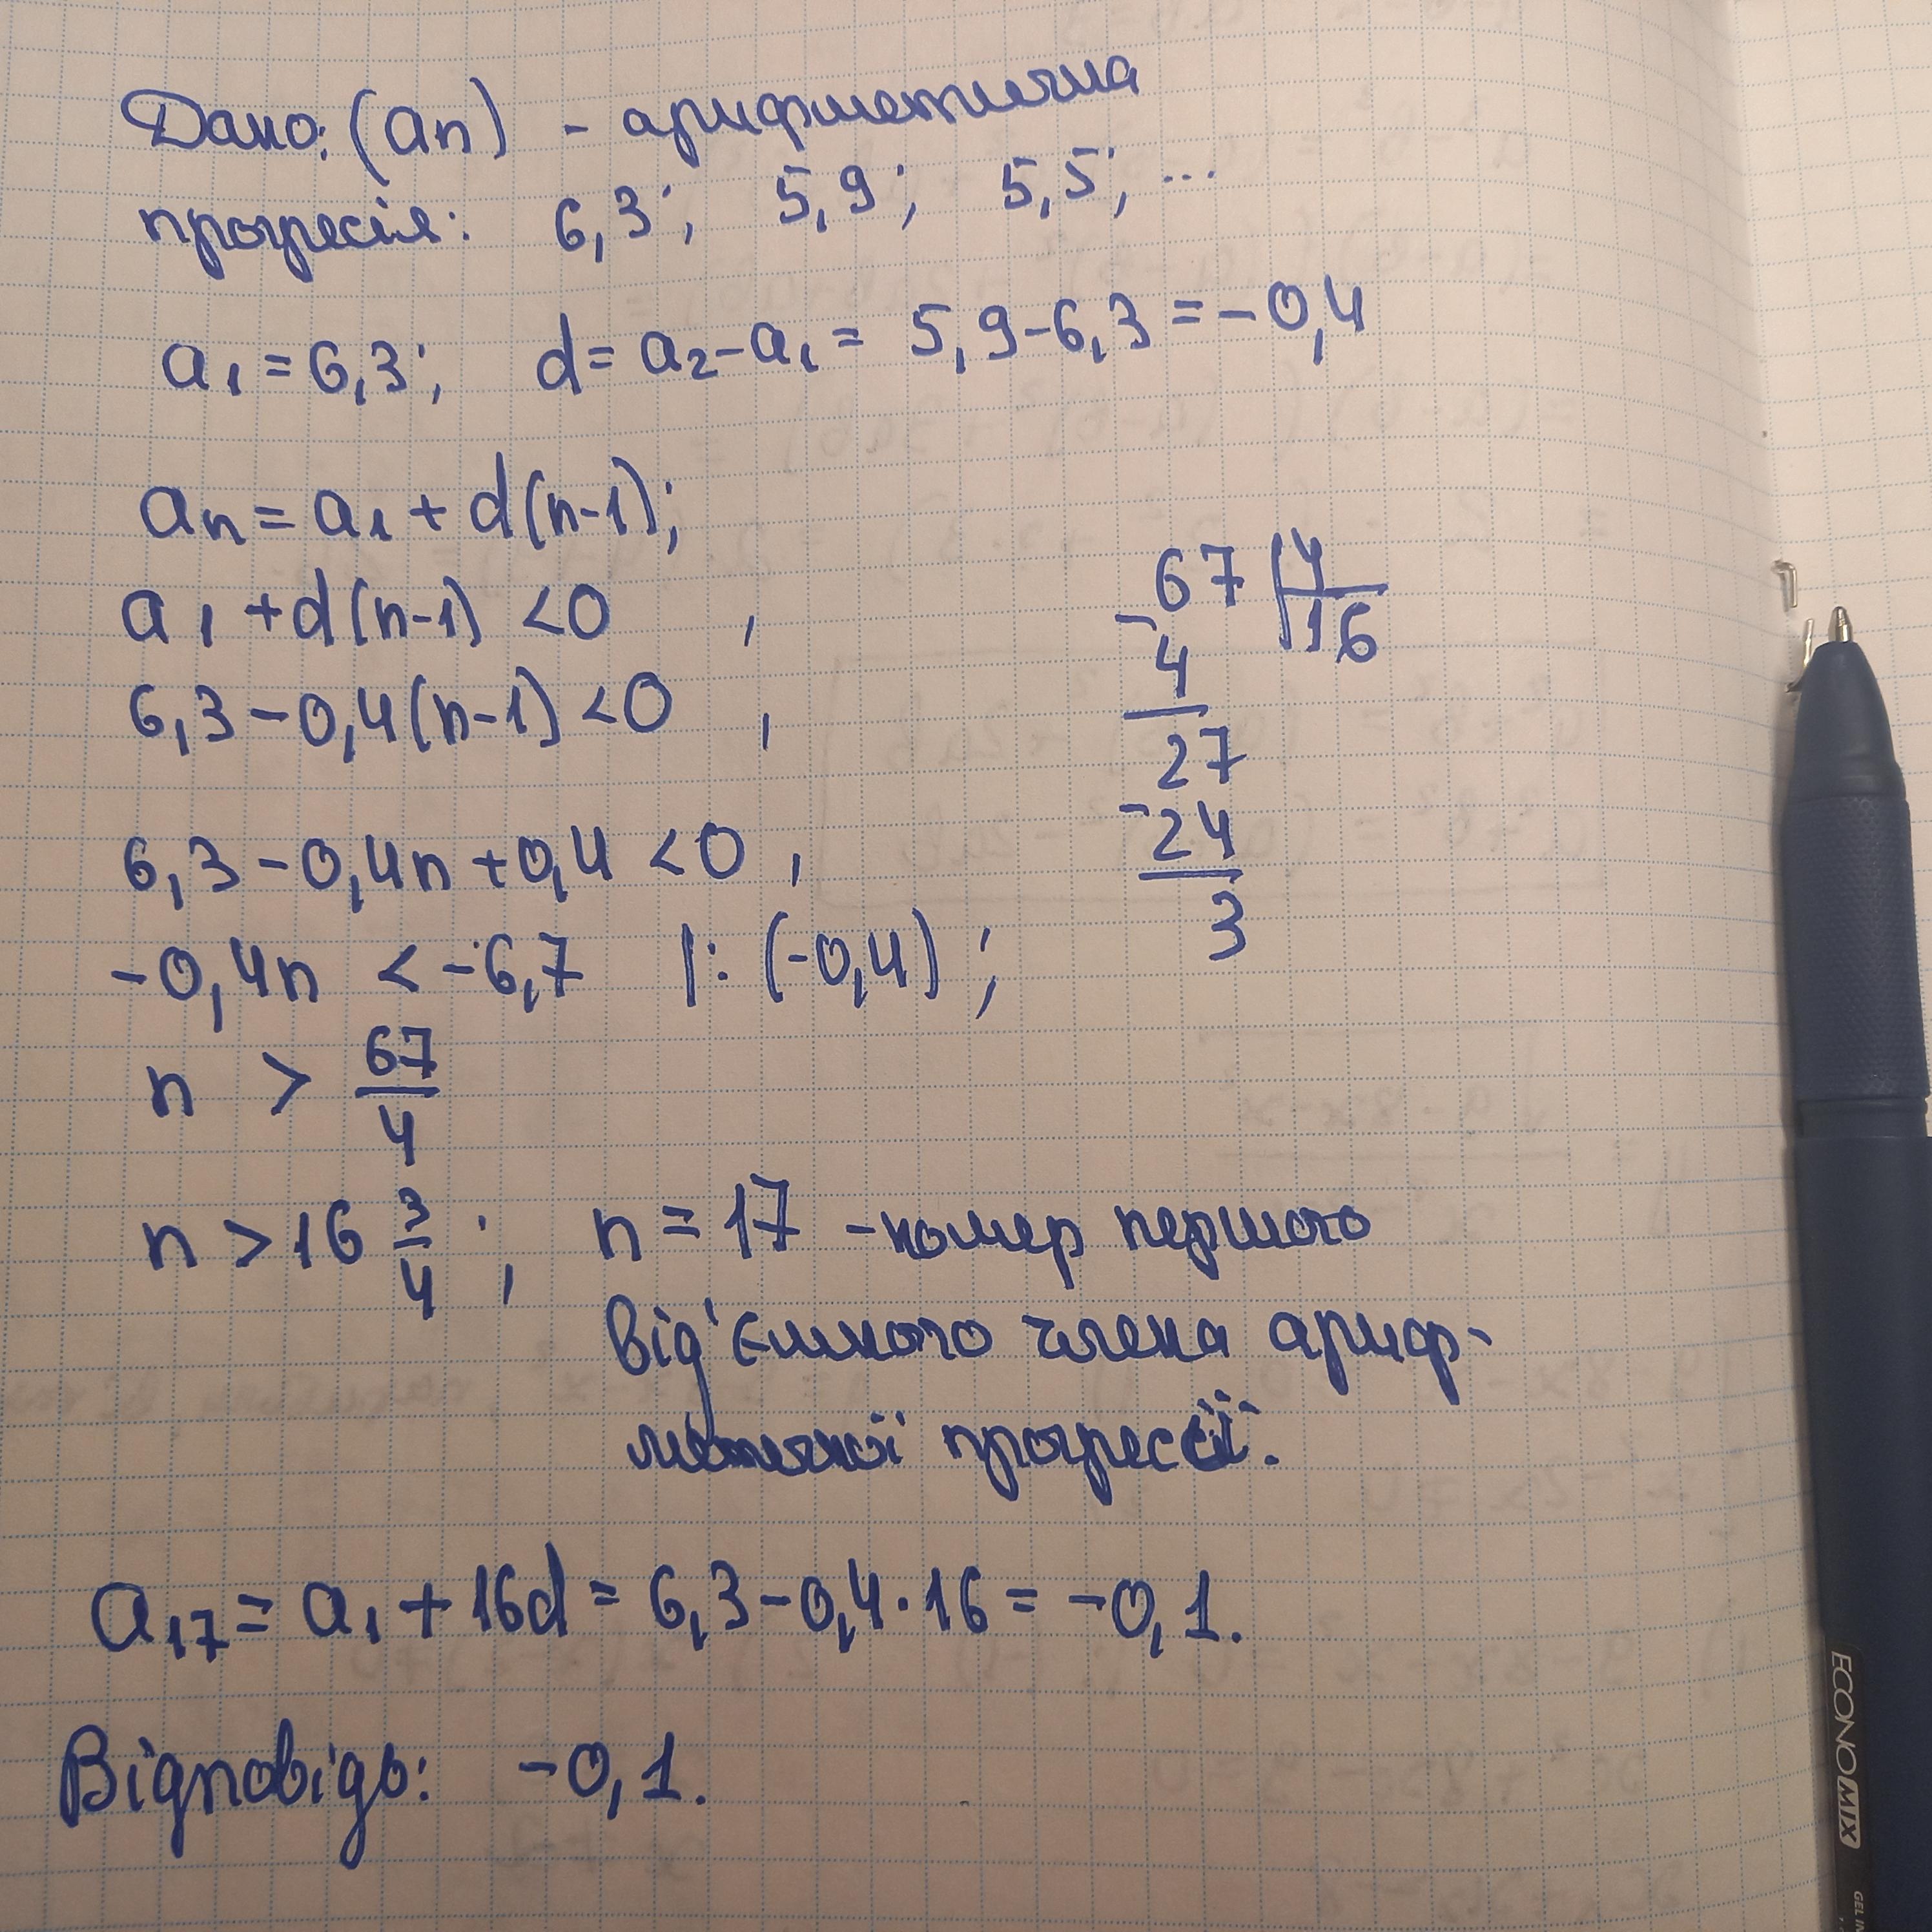 Дано: (an) - арифметична
прогресія: 6,3; 5,9; 5,5; ...
a₁ = 6,3; d = a₂ - a₁ = 5,9 - 6,3 = -0,4
an = a₁ + d(n-1);
a₁ + d(n-1) < 0 ,
6,3 - 0,4(n-1) < 0 ,
6,3 - 0,4n + 0,4 < 0 ,
-0,4n < -6,7 |: (-0,4) ;
n > 67/4
n > 16 3/4 ; n = 17 - номер першого
від'ємного члена ариф-
метичної прогресії.
67 | 4
- 4 | 16
27
- 24
3
a₁₇ = a₁ + 16d = 6,3 - 0,4 · 16 = -0,1.
Відповідь: -0,1.
ECONOMIX